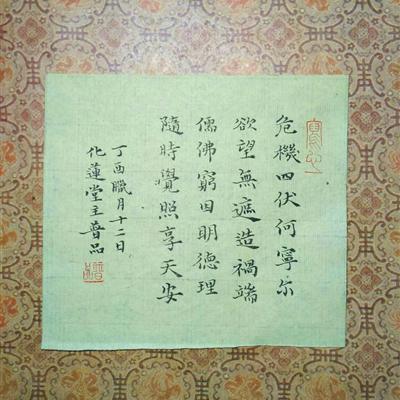 危機四伏何寧尓
欲望無遮造禍端
儒佛窮因明德理
隨時覺照享天安
丁酉臘月十二日
化蓮堂主普品